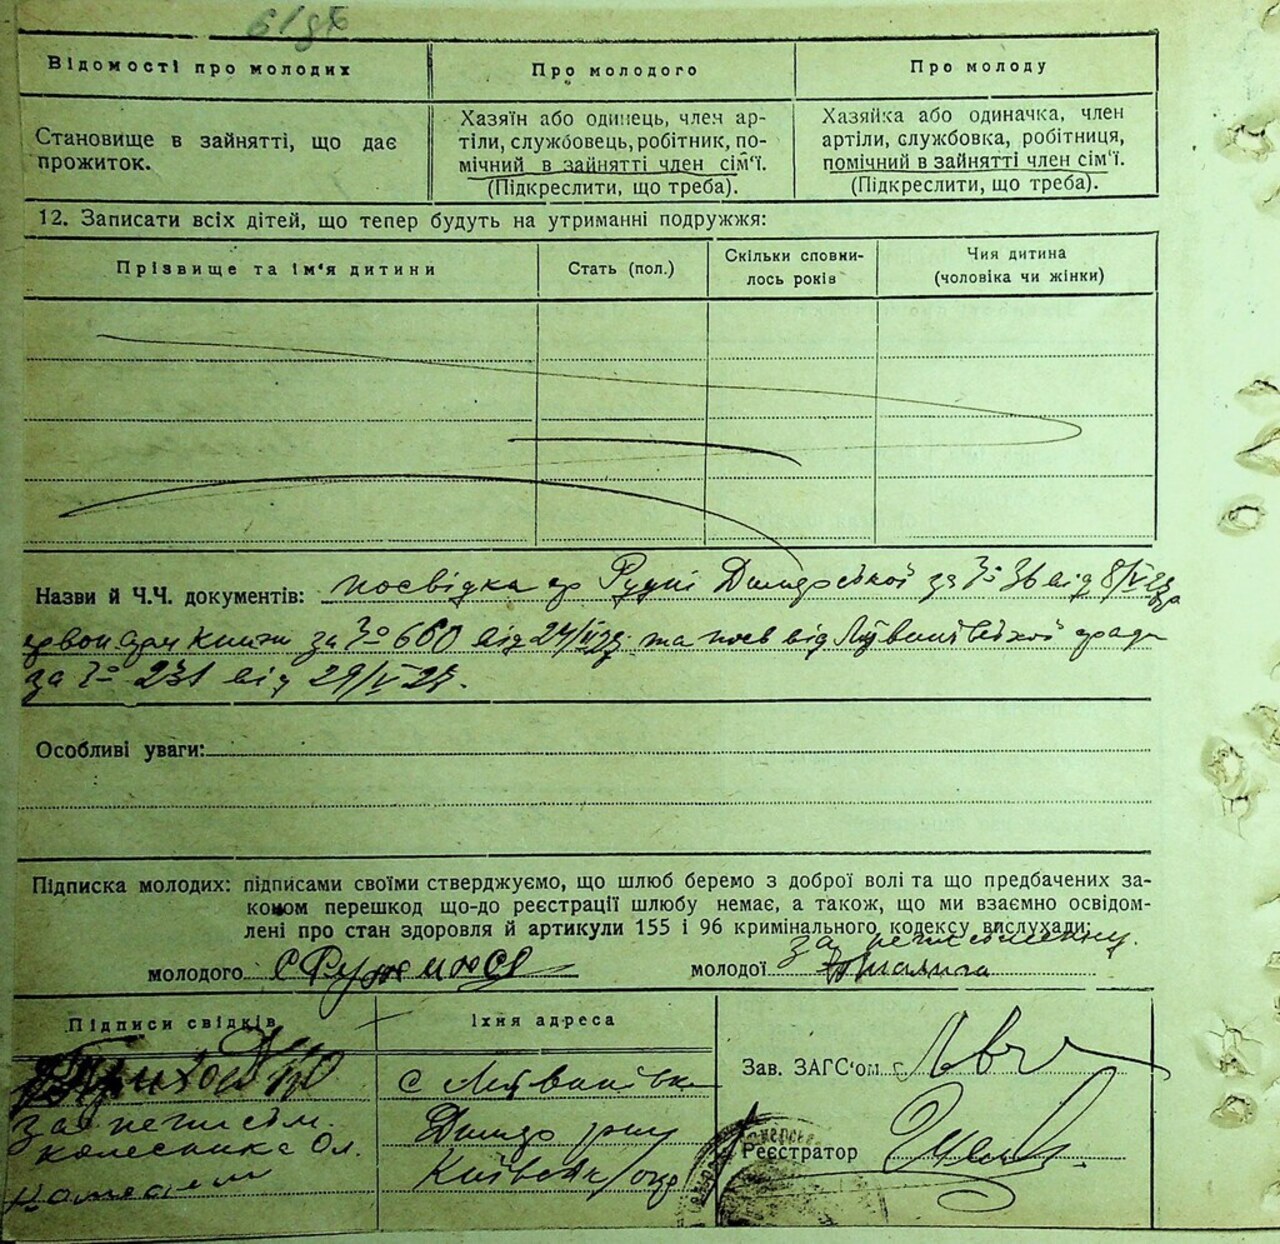 Відомості про молодих
Про молодого
Про молоду
Становище в зайнятті, що дає
прожиток.
Хазяїн або одинець, член ар-
тіли, службовець, робітник, по-
мічний в зайнятті член сім'ї.
(Підкреслити, що треба).
Хазяйка або одиначка, член
артіли, службовка, робітниця,
помічний в зайнятті член сім'ї.
(Підкреслити, що треба).
12. Записати всіх дітей, що тепер будуть на утриманні подружжя:
Прізвище та ім'я дитини
Стать (пол.)
Скільки сповни-
лось років
Чия дитина
(чоловіка чи жінки)
Назви й Ч.Ч. документів: посвідка Рудні Димерської за № 36 від 8/V
книж за № 660 від 24/ та посв від Литвинівської
за № 231 від 29/V
Особливі уваги:
Підписка молодих: підписами своїми стверджуємо, що шлюб беремо з доброї волі та що предбачених за-
коном перешкод що-до реєстрації шлюбу немає, а також, що ми взаємно освідом-
лені про стан здоровля й артикули 155 і 96 кримінального кодексу вислухали:
молодого
молодої
Підписи свідків
Їхня адреса
с Литвинівка
Київськ/окр
Зав. ЗАГС'ом
Реєстратор